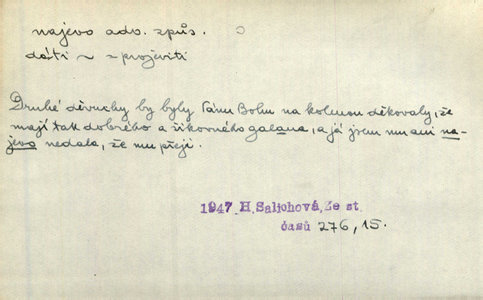 najevo adv. způs.
dáti ~ = projeviti
Druhé děvuchy by byly Pánu Bohu na kolenou děkovaly, že
mají tak dobrého a šikovného galana, a já jsem mu ani na-
jevo nedala, že mu přeji.
1947 H. Salichová, Ze st.
časů 276, 15.